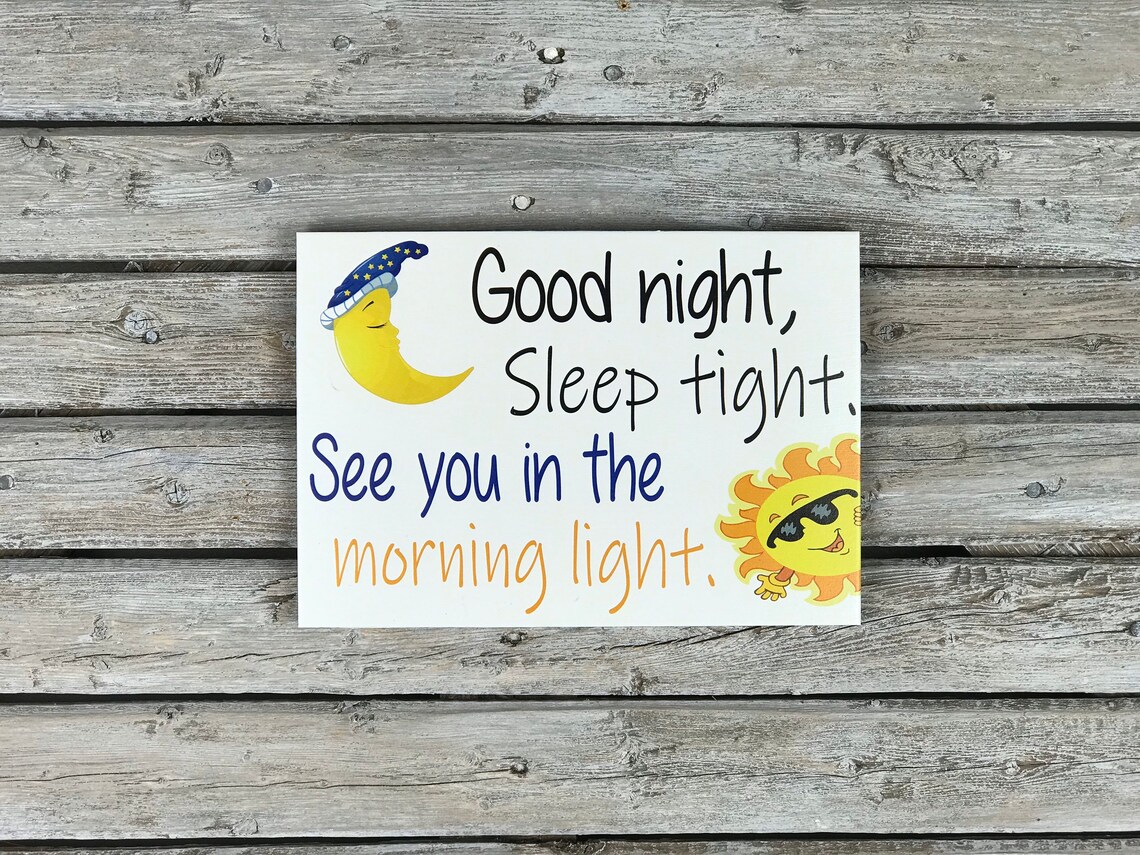 Good night,
Sleep tight.
See you in the
morning light.